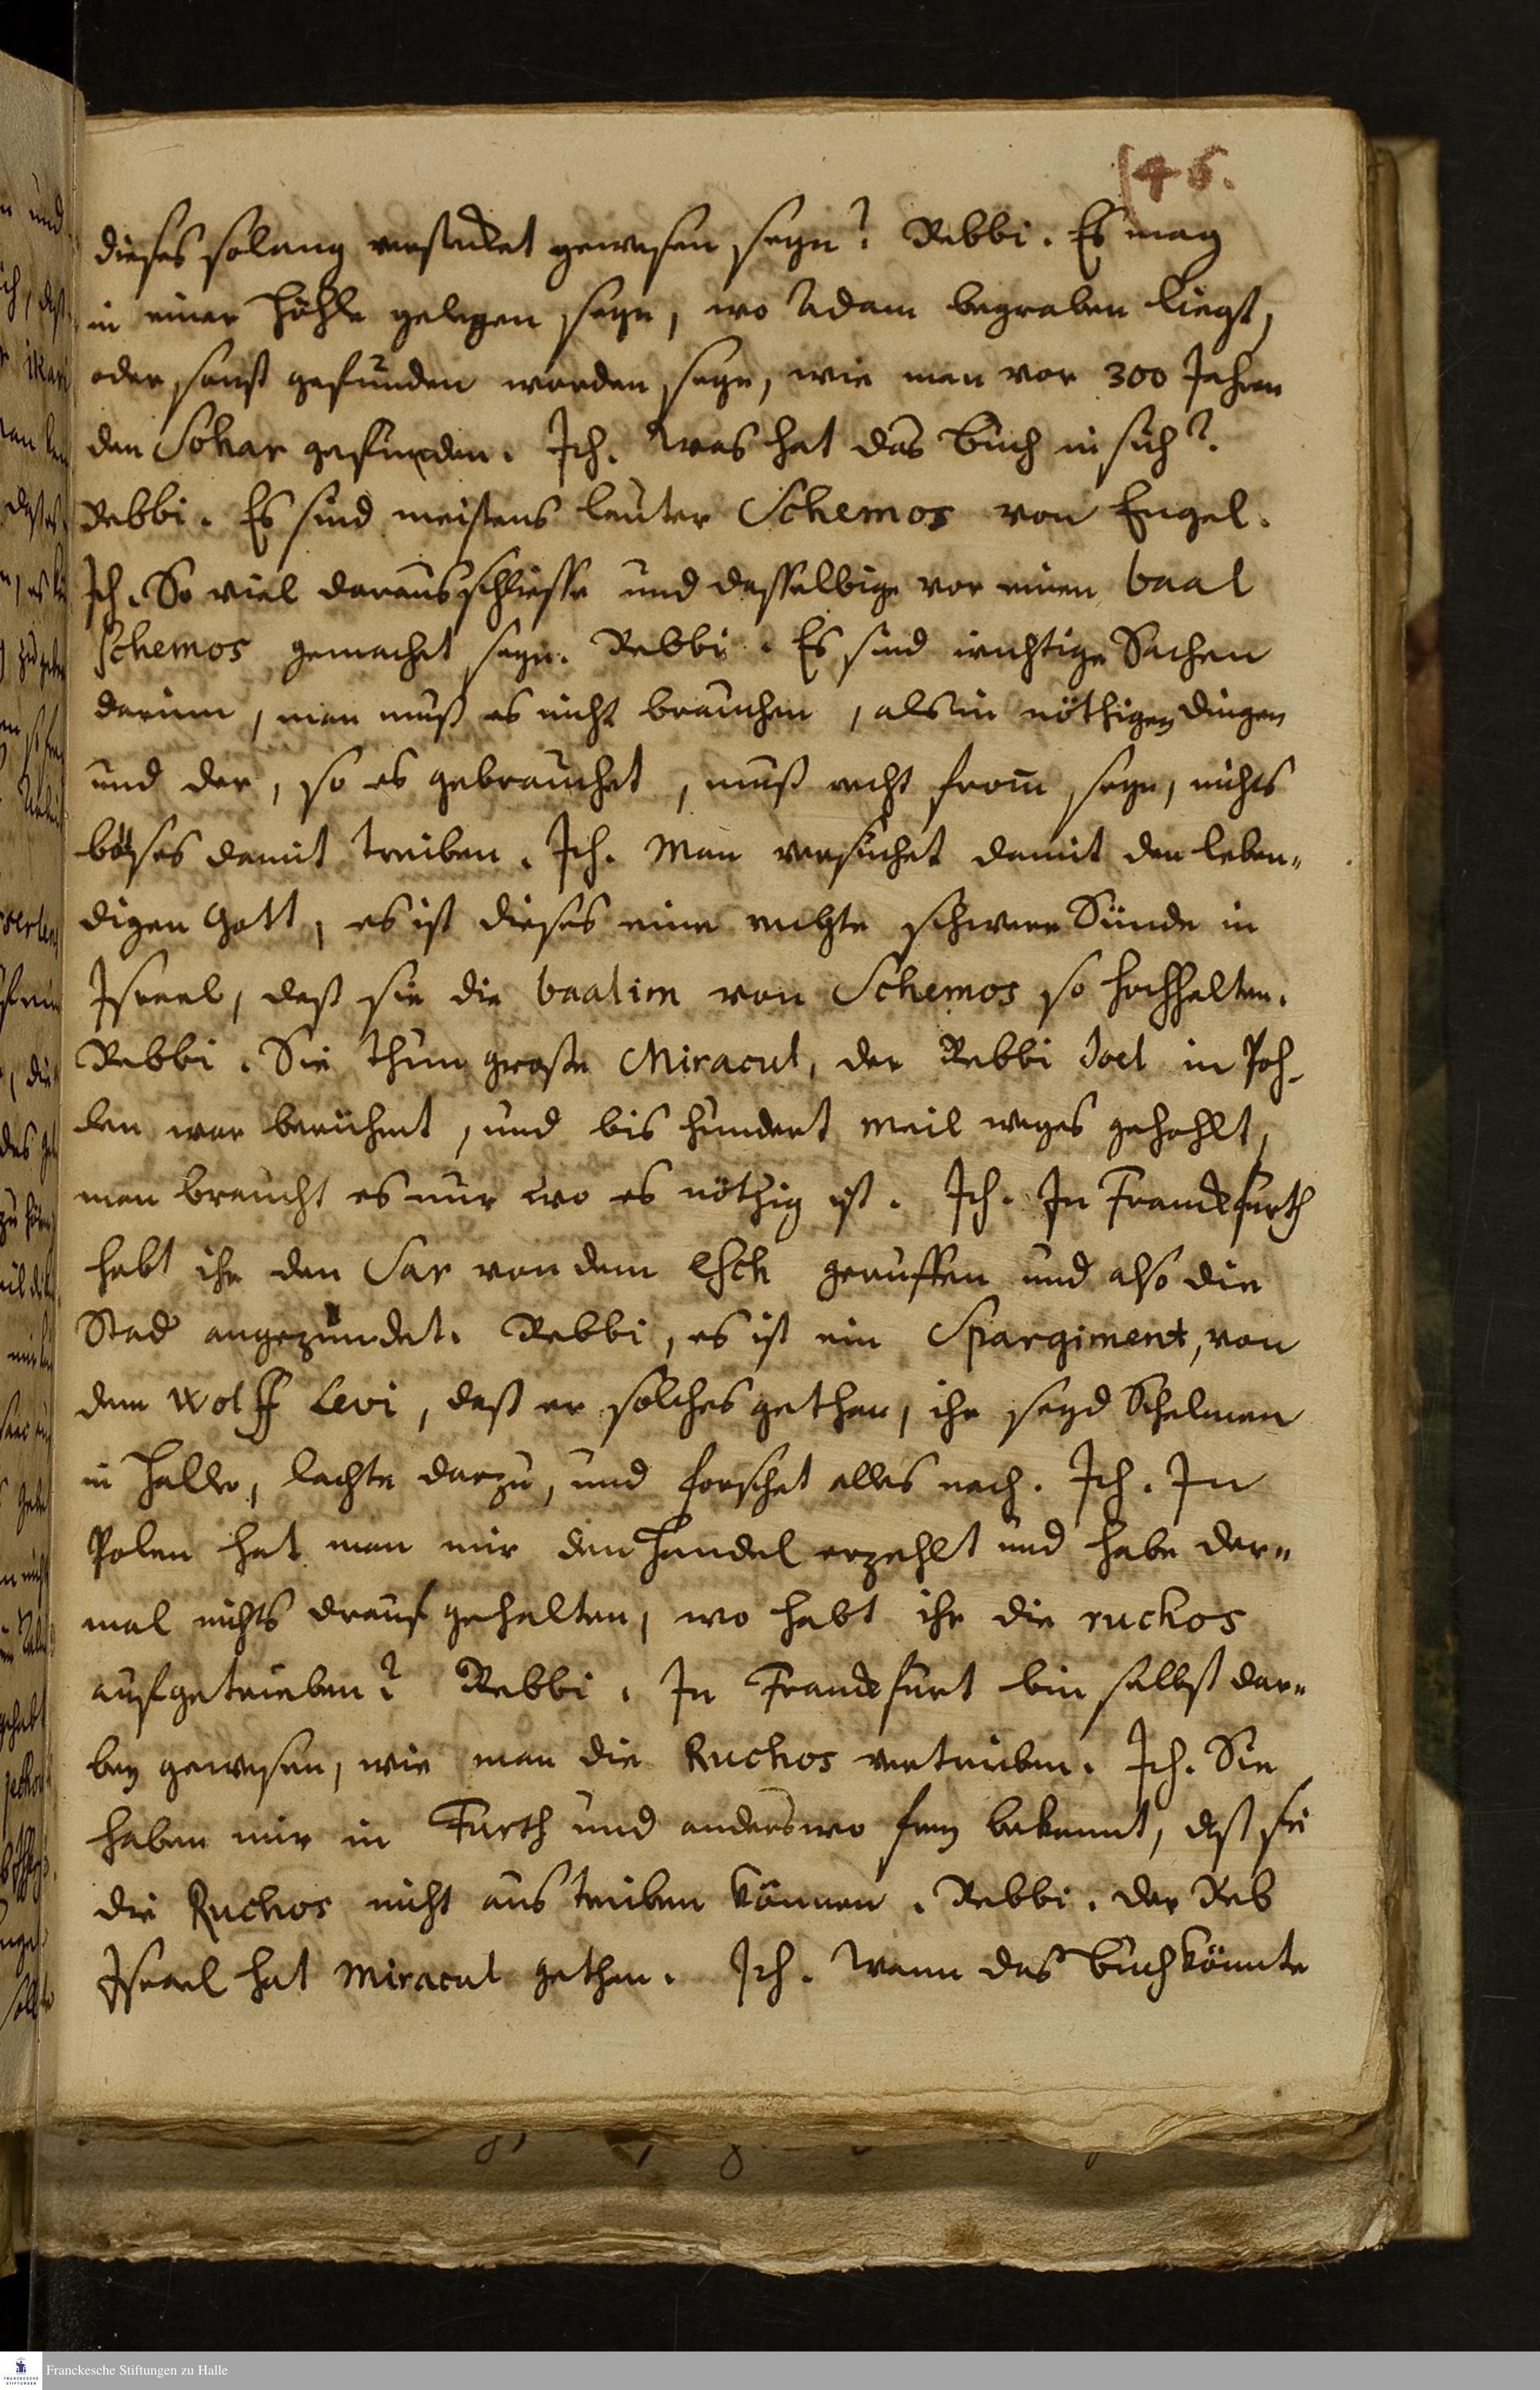 146.
dieses solang verstecket gewesen seyn? Rebbi. Es mag
in einer Höhle gelegen seyn, wo Adam begraben liegt,
oder sonst gefunden worden seyn, wie man vor 300 Jahren
den Sohar gefunden. Ich. Was hat das Buch in sich?
Rebbi. Es sind meistens lauter Schemos von Engel.
Ich. So viel daraus schliesse und dasselbige vor einen baal
schemos gemachet seyn. Rebbi. Es sind wichtige Sachen
darinn, man muß es nicht brauchen, als in nöthigen dingen
und der, so es gebrauchet, muß recht from̅ seyn, nichts
böses damit treiben. Ich. Man versuchet damit den leben-
digen Gott, es ist dieses eine rechte schwere Sünde in
Israel, daß sie die baalim von Schemos so hochhalten.
Rebbi. Sie thun große Miracul, der Rebbi Joel in Poh-
len war berühmt, und bis hundert meil weges gehohlt,
man braucht es nur wo es nöthig ist. Ich. In Franckfurth
habt ihr den Sar von dem Esch geruffen und also die
Stad angezündet. Rebbi, es ist ein Spargiment, von
dem Wolff Levi, daß er solches gethan, ihr seyd Schelmen
in Halle, lachte darzu, und forschet alles nach. Ich. In
Polen hat man mir den Handel erzehlt und habe der-
mal nichts drauf gehalten, wo habt ihr die ruchos
ausgetrieben? Rebbi. In Franckfurt bin selbst dar-
bey gewesen, wie man die Ruchos vertrieben. Ich. Sie
haben mir in Furth und anderswo frey bekennt, daß sie
die Ruchos nicht austreiben können. Rebbi. der Reb
Israel hat Miracul gethan. Ich. Wann das Buch könnte
Franckesche Stiftungen zu Halle